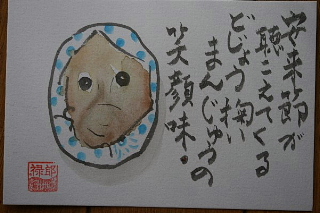 安来節が
聴こえてくる
どじょう掬い
まんじゅうの
笑顔味。